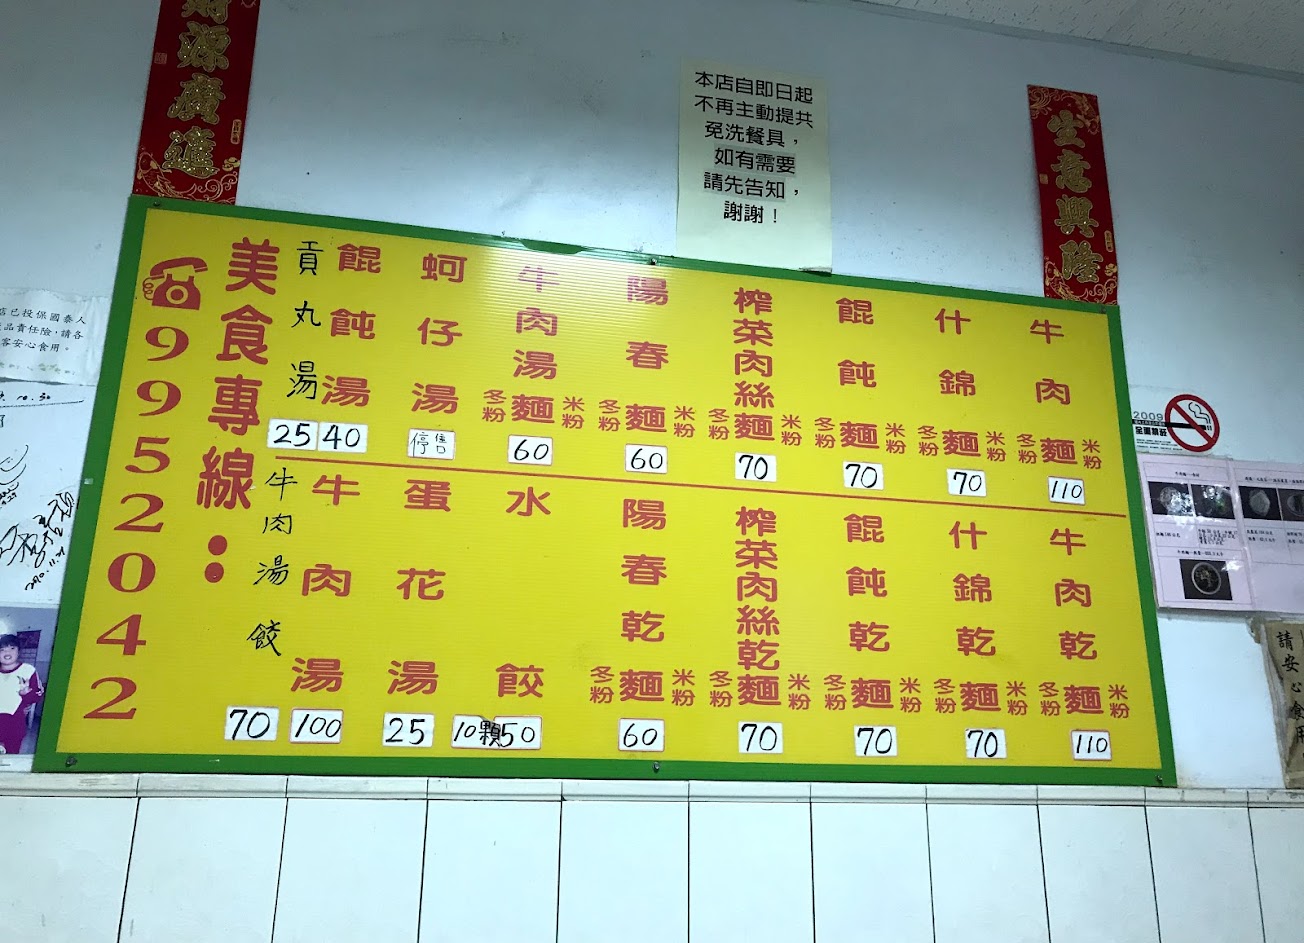 財源廣進
本店自即日起
不再主動提共
免洗餐具，
如有需要
請先告知，
謝謝！
生意興隆
牛肉麵 冬粉 米粉 110
什錦麵 冬粉 米粉 70
餛飩麵 冬粉 米粉 70
榨菜肉絲麵 冬粉 米粉 70
陽春麵 冬粉 米粉 60
牛肉湯麵 冬粉 米粉 60
蚵仔湯 停售
餛飩湯 40
貢丸湯 25
牛肉乾麵 冬粉 米粉 110
什錦乾麵 冬粉 米粉 70
餛飩乾麵 冬粉 米粉 70
榨菜肉絲乾麵 冬粉 米粉 70
陽春乾麵 冬粉 米粉 60
水餃 10顆50
蛋花湯 25
牛肉湯 100
牛肉湯餃 70
美食專線：
☎9952042
已投保國泰人
品責任險，請各
客安心食用。
10.30
2009
全面禁菸
請安心食用